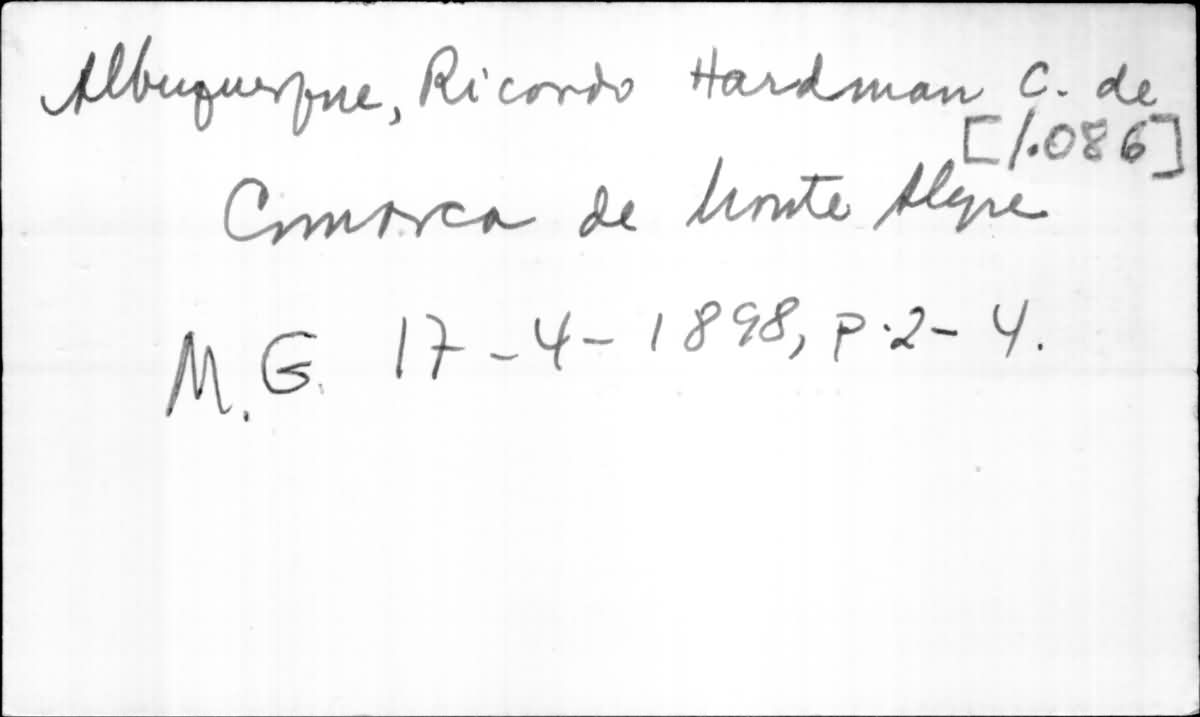 Albuquerque, Ricardo Hardman C. de
[1.086]
Comarca de Monte Alegre
M.G. 17-4-1898, p.2-4.